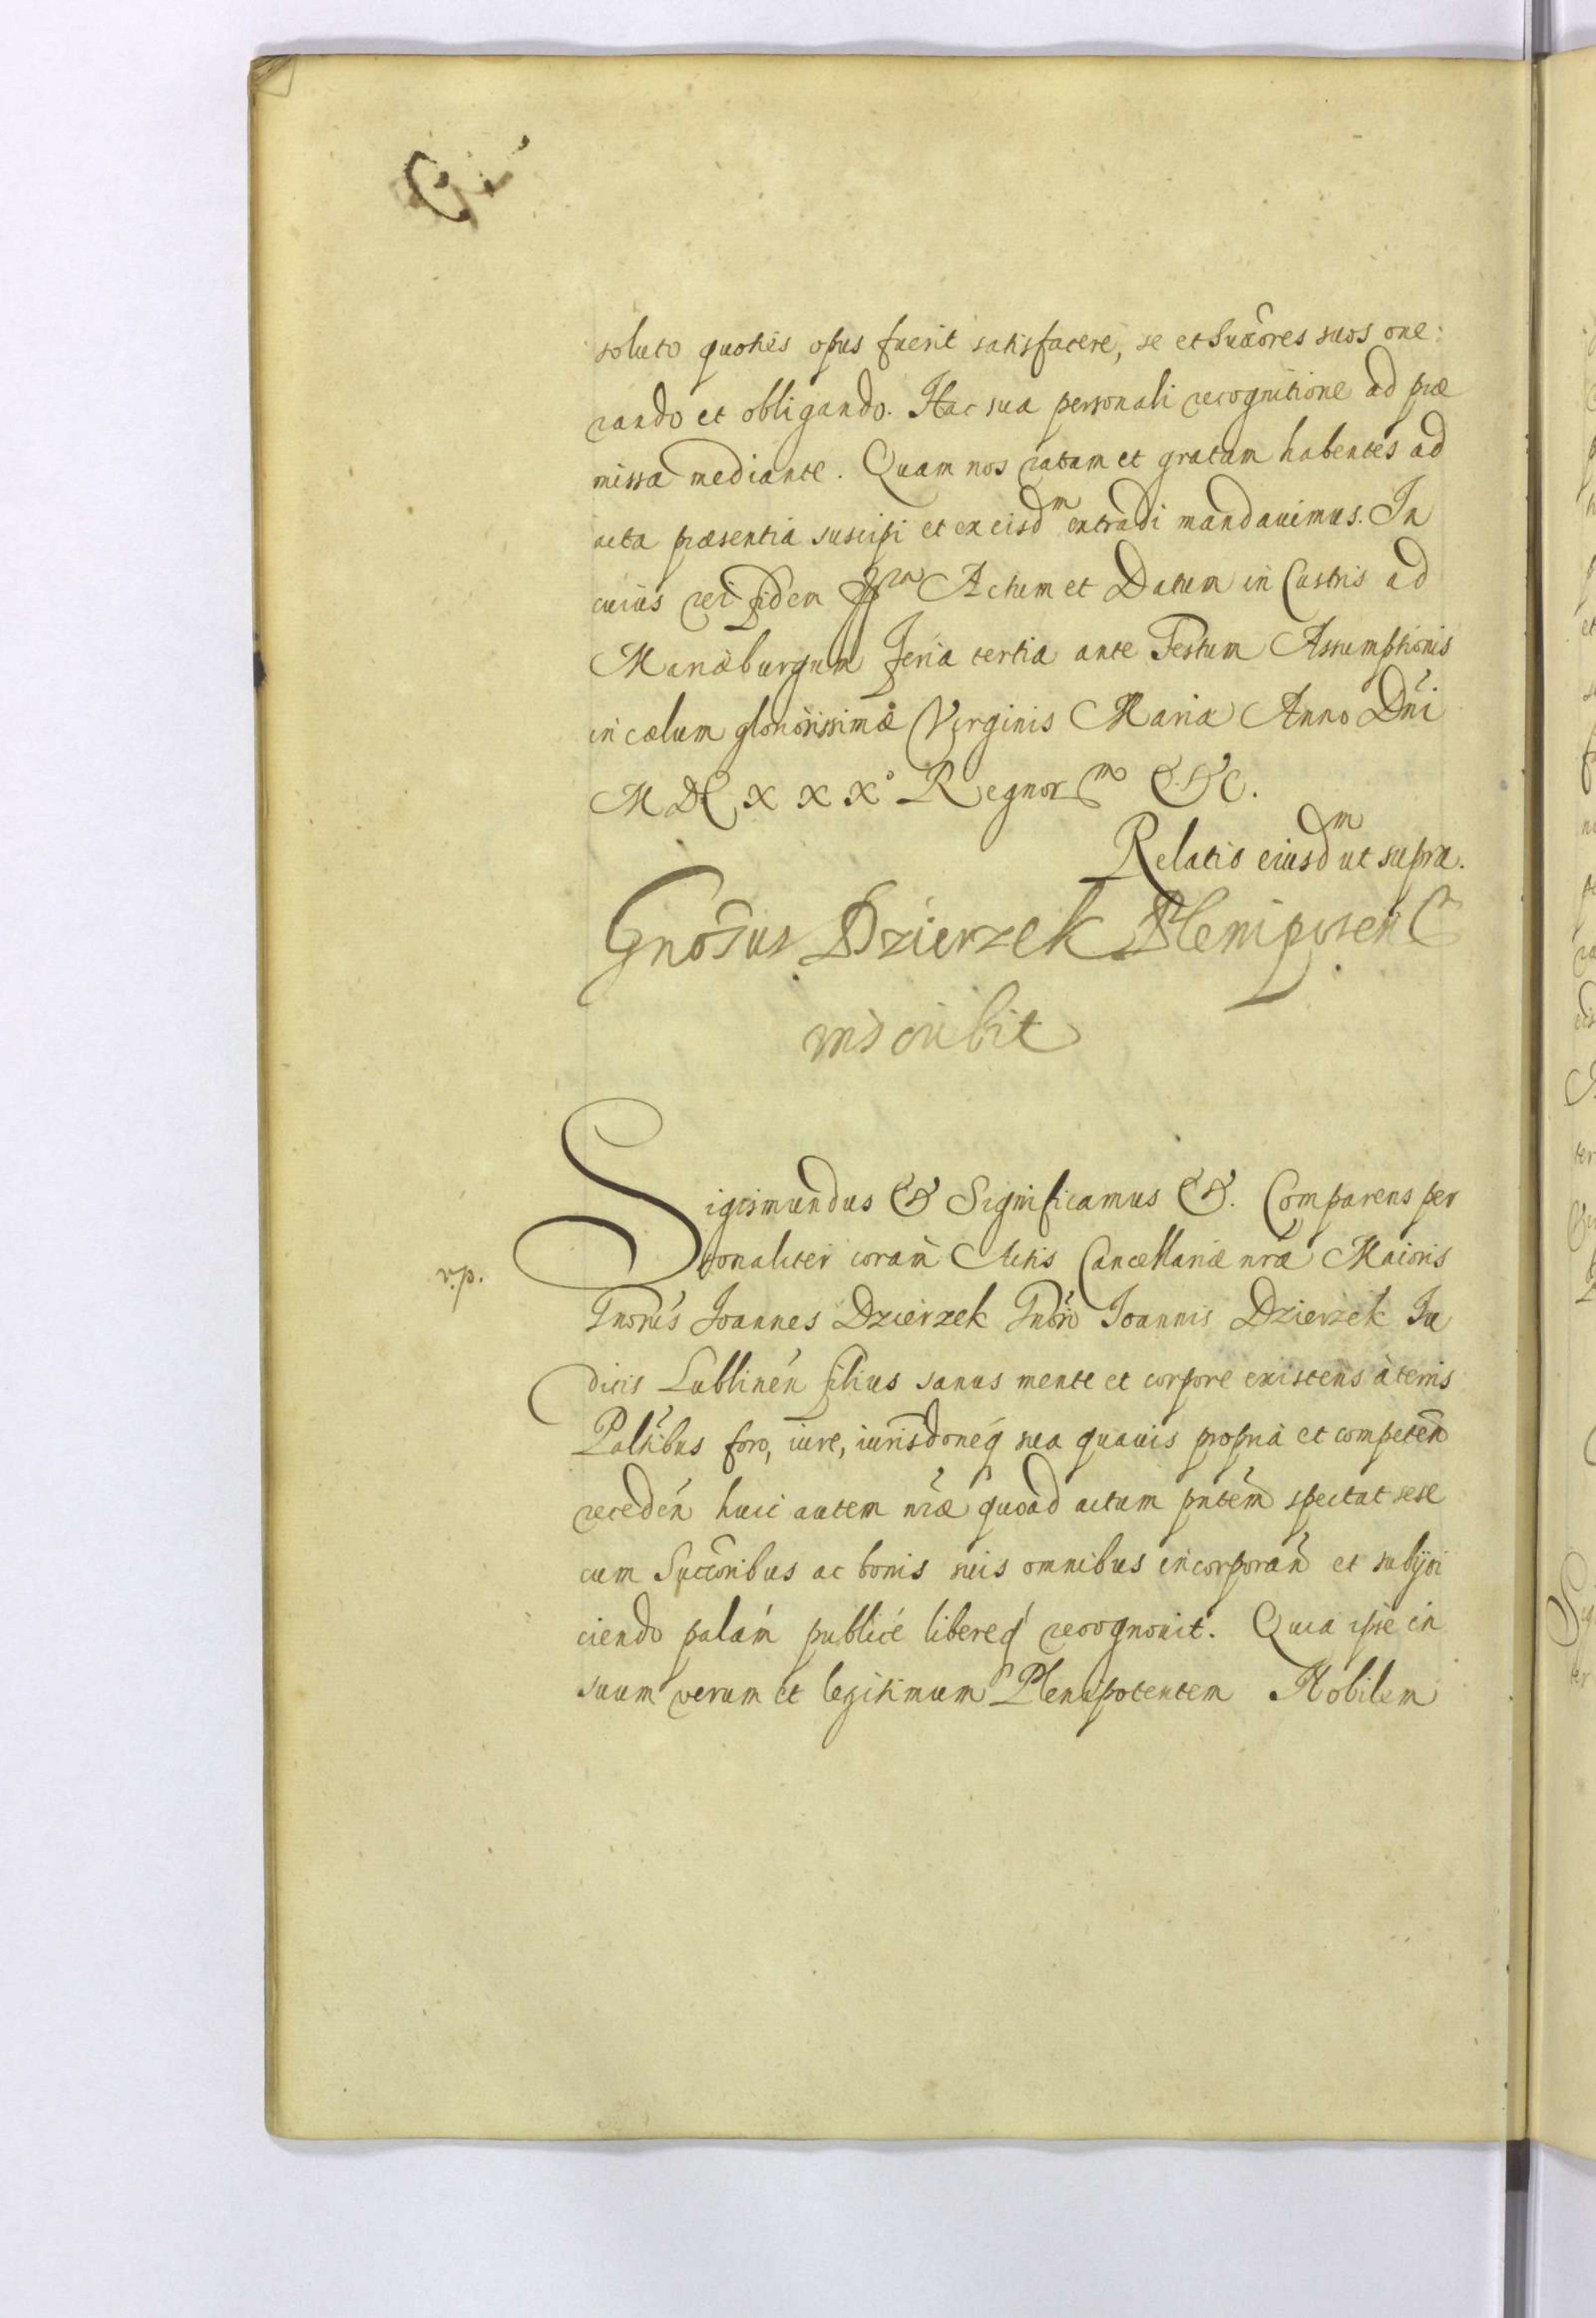 soluto quoties opus fuerit satisfacere, se et Succõres suos one:
rando et obligando. Hac sua personali recognitione ad præ
missa mediante. Quam nos ratam et gratam habentes ad
acta præsentia suscipi et ex eisdm extradi mandauimus. In
cuius rei fidem Actum et Datum in Castris ad
Mariæburgum feria tertia ante Festum Assumptionis
in cælum gloriosissimæ Virginis Mariæ Anno Dñi
MDCXXXº Regnorm &c.
Relatio eiusdm ut supra.
Gnõsus Dzierzek Plenipoten
inscribit
Sigismundus & Significamus &. Comparens per
sonaliter coram Actis Cancellariæ nræ Maioris
v.p.
Gnõsus Joannes Dzierzek Gnõsi Joannis Dzierzek Ju
dicis Lublinen filius sanus mente et corpore existens à terris
Paltibus foro, iure, iurisdoneq sua quauis propria et competen
receden huic autem nræ quoad actum pntem spectat sese
cum Succoribus ac bonis suis omnibus incorporan et subijci
ciendo palam publicè libereq recognouit. Quia ipse in
suum verum et legitimum Plenipotentem Nobilem